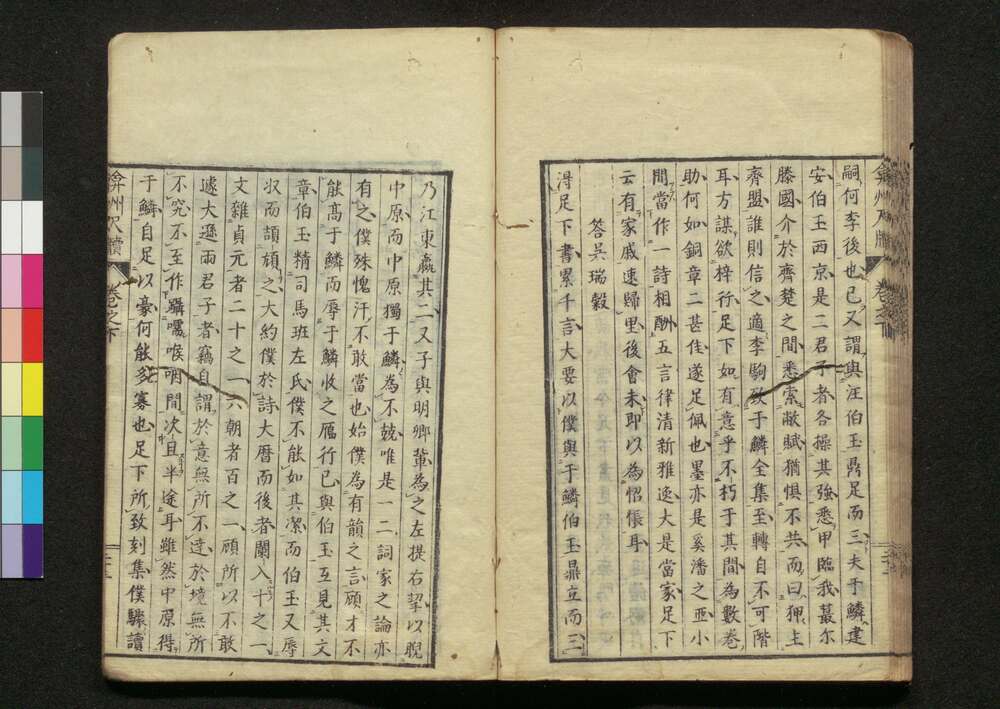 嗣何李後也已又謂與汪伯玉鼎足而三夫于鱗建
安伯玉西京是二君子者各操其強悉甲臨我蕞尔
滕國介於齊楚之間悉索敝賦猶惧不共而曰狎主
齊盟誰則信之適李駒致于鱗全集至轉自不可階
耳方謀欲梓行足下如有意乎不朽于其間為數卷
助何如銅章二甚佳遂足佩也墨亦是奚潘之亞小
間當作一詩相酬五言律清新雅逸大是當家足下
云有家戚速歸里後會未即以為怊悵耳
答吳瑞穀
淂足下書累千言大要以僕與于鱗伯玉鼎立而三
乃江東嬴其二又子與明卿輩為之左提右挈以睨
中原而中原獨于鱗為不兢唯是一二詞家之論亦
有之僕殊愧汗不敢當也始僕為有韻之言顧才不
能髙于鱗而辱于鱗收之鴈行已與伯玉互見其文
章伯玉精司馬班左氏僕不能如其潔而伯玉又辱
収而頡頏之大約僕於詩大曆而後者闌入十之一
文雜貞元者二十之一六朝者百之一顧所以不敢
遽大遜兩君子者竊自謂於意無所不達於境無所
不究不至作囁嚅喉吻間次且半途耳雖然中原得
于鱗自足以豪何能多寡也足下所致刻集僕驟讀
弇州尺牘 卷之下